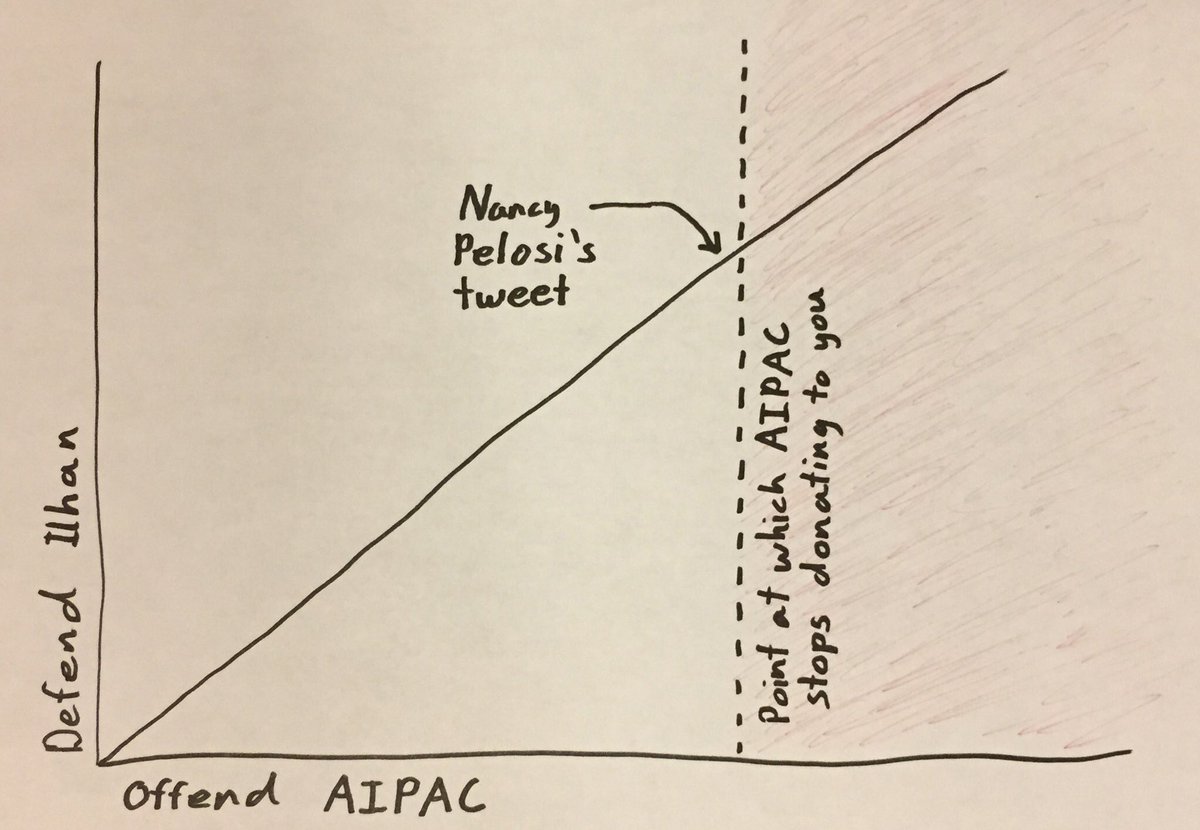 Nancy
Pelosi's
tweet
Point at which AIPAC
stops donating to you
Defend Ilhan
Offend AIPAC